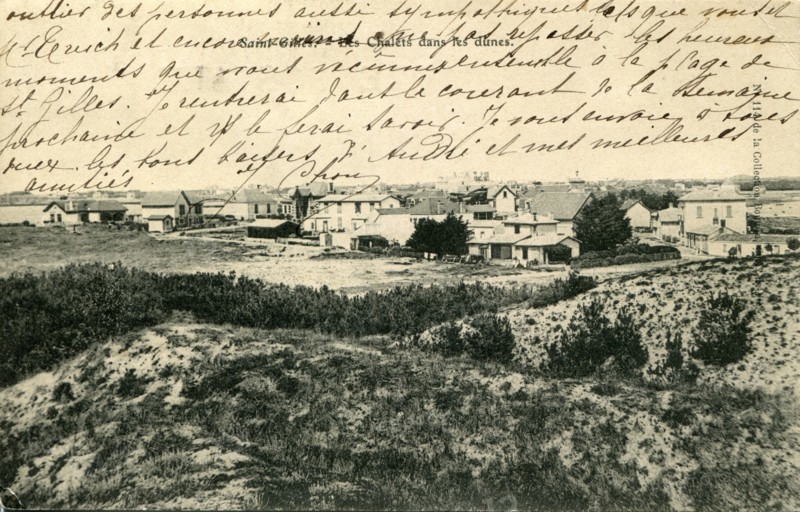 oublier des personnes aussi sympathiques telles que vous et
Mr et encore à repasser les heureux
Saint-Gilles. - Les Chalets dans les dunes.
moments que nous vécûmes ensemble à la plage de
St. Gilles. Je rentrerai dans le courant de la semaine
prochaine et je le ferai savoir. Je vous envoie à tous
deux les bons baisers d'André et mes meilleures
amitiés
11 de la Collection